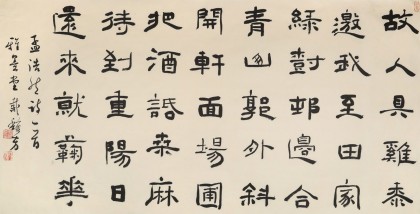 故人具雞黍
邀我至田家
綠對邨邊合
青山郭外斜
開軒面場圃
把酒話桒麻
待到重陽日
還來就蘜華
孟浩然詩一首